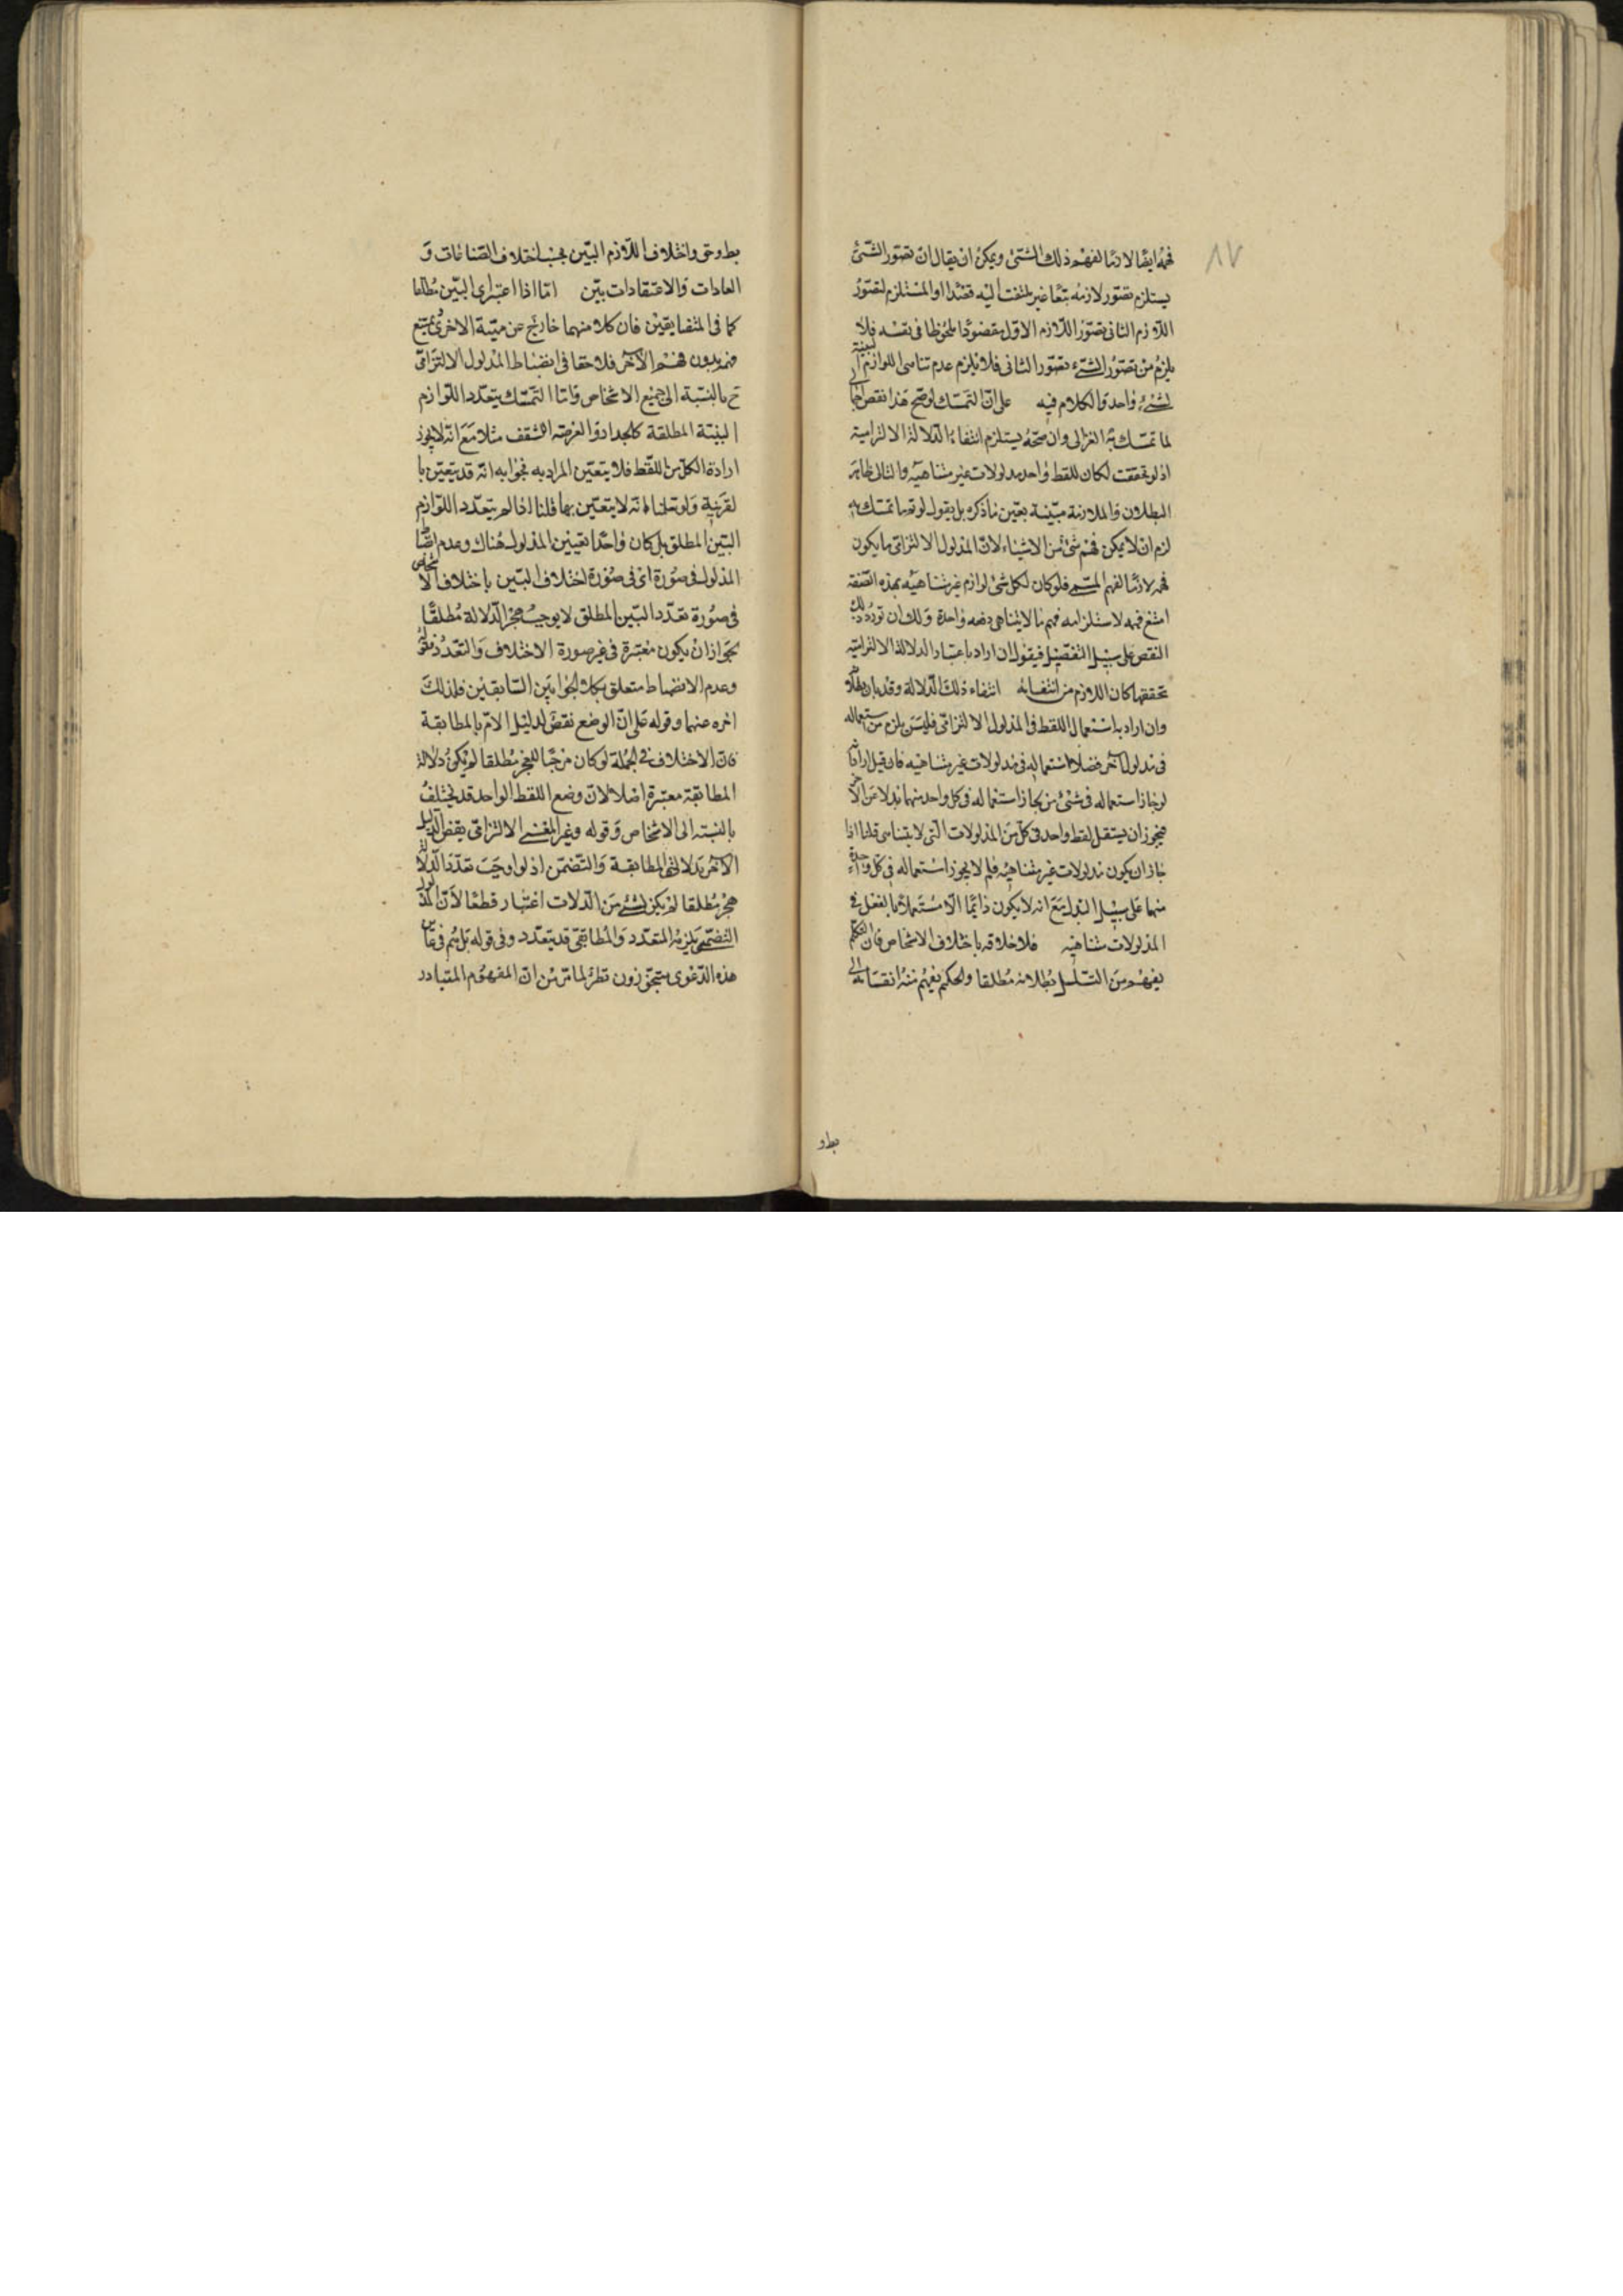 ٨٧
فهمه ايضا لازما لفهم ذلك الشئ ويمكن ان يقال ان تصور الشئ
يستلزم تصور لازمه تبعا غير ملتفت اليه قصدا والمستلزم لتصور
اللازم الثانى تصور اللازم الاول مقصودا ملحوظا فى نفسه فلا
يلزم من تصور الشئ تصور الثانى فلا يلزم عدم تناهى اللوازم البينة
لشئ واحد والكلام فيه على ان التمسك لوضح هذا نقض اجمالى
لما تمسك به الغزالى وان صحته يستلزم انتفاء الدلالة الالتزامية
اذ لو تحققت لكان للفظ واحد مدلولات غير متناهية والتالى ظاهر
البطلان والملازمة مبينة بعين ما ذكره بل يقول لو تم ما تمسك به
لزم ان لا يمكن فهم شئ من الاشياء لان المدلول الالتزامى ما يكون
فهمه لازما لفهم المسمى فلو كان لكل شئ لوازم غير متناهية بهذه الصفة
امتنع فهمه لاستلزامه فهم ما لا يتناهى دفعة واحدة ولك ان تورد ذلك
النقض على سبيل التفصيل فيقول ان اراد باعتبار الدلالة الالتزامية
تحققها كان اللازم من انتفائه انتفاء ذلك الدلالة وقد بان بطلانه
وان اراد به استعمال اللفظ فى المدلول الالتزامى فليس يلزم من استعماله
فى مدلول آخر فضلا استعماله فى مدلولات غير متناهية فان قيل اراد انه
لو جاز استعماله فى شئ من لجاز استعماله فى كل واحد منها بدلا عن الآخر
فيجوز ان يستقل لفظ واحد فى كل من المدلولات التى لا يتناهى قلنا اذا
جاز ان يكون مدلولات غير متناهية فلم لا يجوز استعماله فى كل واحدة
منها على سبيل البدل مع انه لا يكون دائما الا مستعملا بالفعل فى
المدلولات متناهية فلاختلافه باختلاف الاشخاص فان المتكلم
يفهم من التسلسل بطلانه مطلقا والحكيم يفهم منه انقسامه الى
بط و
بط وحق واختلاف اللازم البين بحسب اختلاف الصناعات و
العادات والاعتقادات بين اما اذا اعتبر اى البين مطلقا
كما فى المتضايفين فان كلا منهما خارج عن مهية الاخرى يمتنع
فهمه بدون فهم الآخر فلا خفا فى انضباط المدلول الالتزامى
ح بالنسبة الى جميع الاشخاص واما التمسك بتعدد اللوازم
البينة المطلقة كالجدار والعرصة للسقف مثلا مع انه لا يجوز
ارادة الكل من اللفظ فلا يتعين المراد به فجوابه انه قد يتعين با
لقرينة ولو سلنا انه لا يتعين بها قلنا اذا لم يتعدد اللوازم
البين المطلق بل كان واحدا تعيين المدلول هناك وعدم انضباط
المدلول فى صورة اى فى صورة اختلاف البين باختلاف الاشخاص
فى صورة تعدد البين المطلق لا يوجب هجر الدلالة مطلقا
لجواز ان يكون معتبرة فى غير صورة الاختلاف والتعدد
وعدم الانضباط متعلق بكلا الجوابين السابقين فلذلك
اخره عنهما وقوله على ان الوضع نقض لدليل الامر بالمطابقة
فان الاختلاف فى الجملة لو كان موجبا للهجر مطلقا لم يكن دلالة
المطابقة معتبرة اصلا لان وضع اللفظ الواحد قد يختلف
بالنسبة الى الاشخاص وقوله وغير المعنى الالتزامى ينقض الدليل
الآخر بدلالتى المطابقة والتضمن اذ لو اوجب تعدد الدلالة
هجر مطلقا لم يكن لشئ من الدلالات اعتبار قطعا لان المدلول
التضمنى يلزمه المتعدد والمطابقى قد يتعدد وفى قوله بل
هذه الدعوى يتجوزون نظر لما مر من ان المفهوم المتبادر